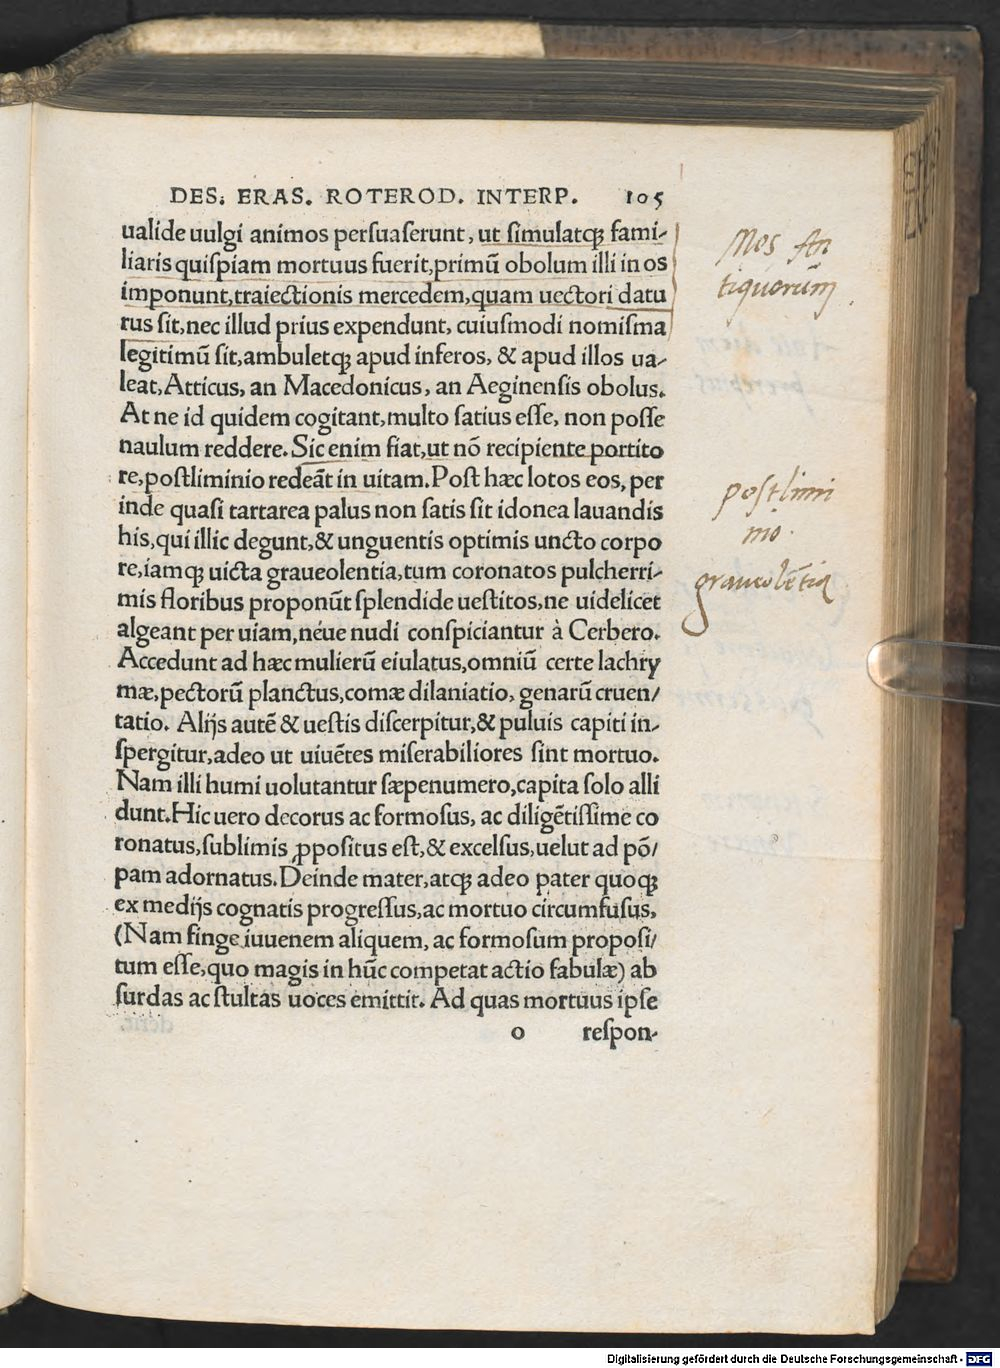 DES. ERAS. ROTEROD. INTERP. 105
ualide uulgi animos persuaserunt, ut simulatqꝫ fami-
liaris quispiam mortuus fuerit, primū obolum illi in os
imponunt, traiectionis mercedem, quam uectori datu
rus sit, nec illud prius expendunt, cuiusmodi nomisma
legitimū sit, ambuletqꝫ apud inferos, & apud illos ua-
leat, Atticus, an Macedonicus, an Aeginensis obolus.
At ne id quidem cogitant, multo satius esse, non posse
naulum reddere. Sic enim fiat, ut nō recipiente portito
re, postliminio redeāt in uitam. Post hæc lotos eos, per
inde quasi tartarea palus non satis sit idonea lauandis
his, qui illic degunt, & unguentis optimis uncto corpo
re, iamqꝫ uicta graueolentia, tum coronatos pulcherri-
mis floribus proponūt splendide uestitos, ne uidelicet
algeant per uiam, néue nudi conspiciantur à Cerbero.
Accedunt ad hæc mulierū eiulatus, omniū certe lachry
mæ, pectorū planctus, comæ dilaniatio, genarū cruen/
tatio. Alijs autē & uestis discerpitur, & puluis capiti in-
spergitur, adeo ut uiuētes miserabiliores sint mortuo.
Nam illi humi uolutantur sæpenumero, capita solo alli
dunt. Hic uero decorus ac formosus, ac diligētissime co
ronatus, sublimis ꝓpositus est, & excelsus, uelut ad pō/
pam adornatus. Deinde mater, atqꝫ adeo pater quoqꝫ
ex medijs cognatis progressus, ac mortuo circumfusus,
(Nam finge iuuenem aliquem, ac formosum proposi/
tum esse, quo magis in hūc competat actio fabulæ) ab
surdas ac stultas uoces emittit. Ad quas mortuus ipse
o respon-
Mos An
tiquorum
postlimi
nio.
graueolētia
Digitalisierung gefördert durch die Deutsche Forschungsgemeinschaft - DFG